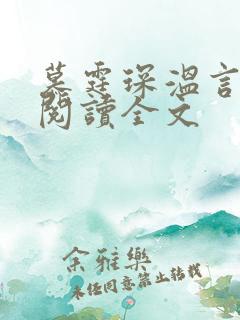 墓霆琛溫言
閱讀全文
余雅樂
未经同意禁止转载